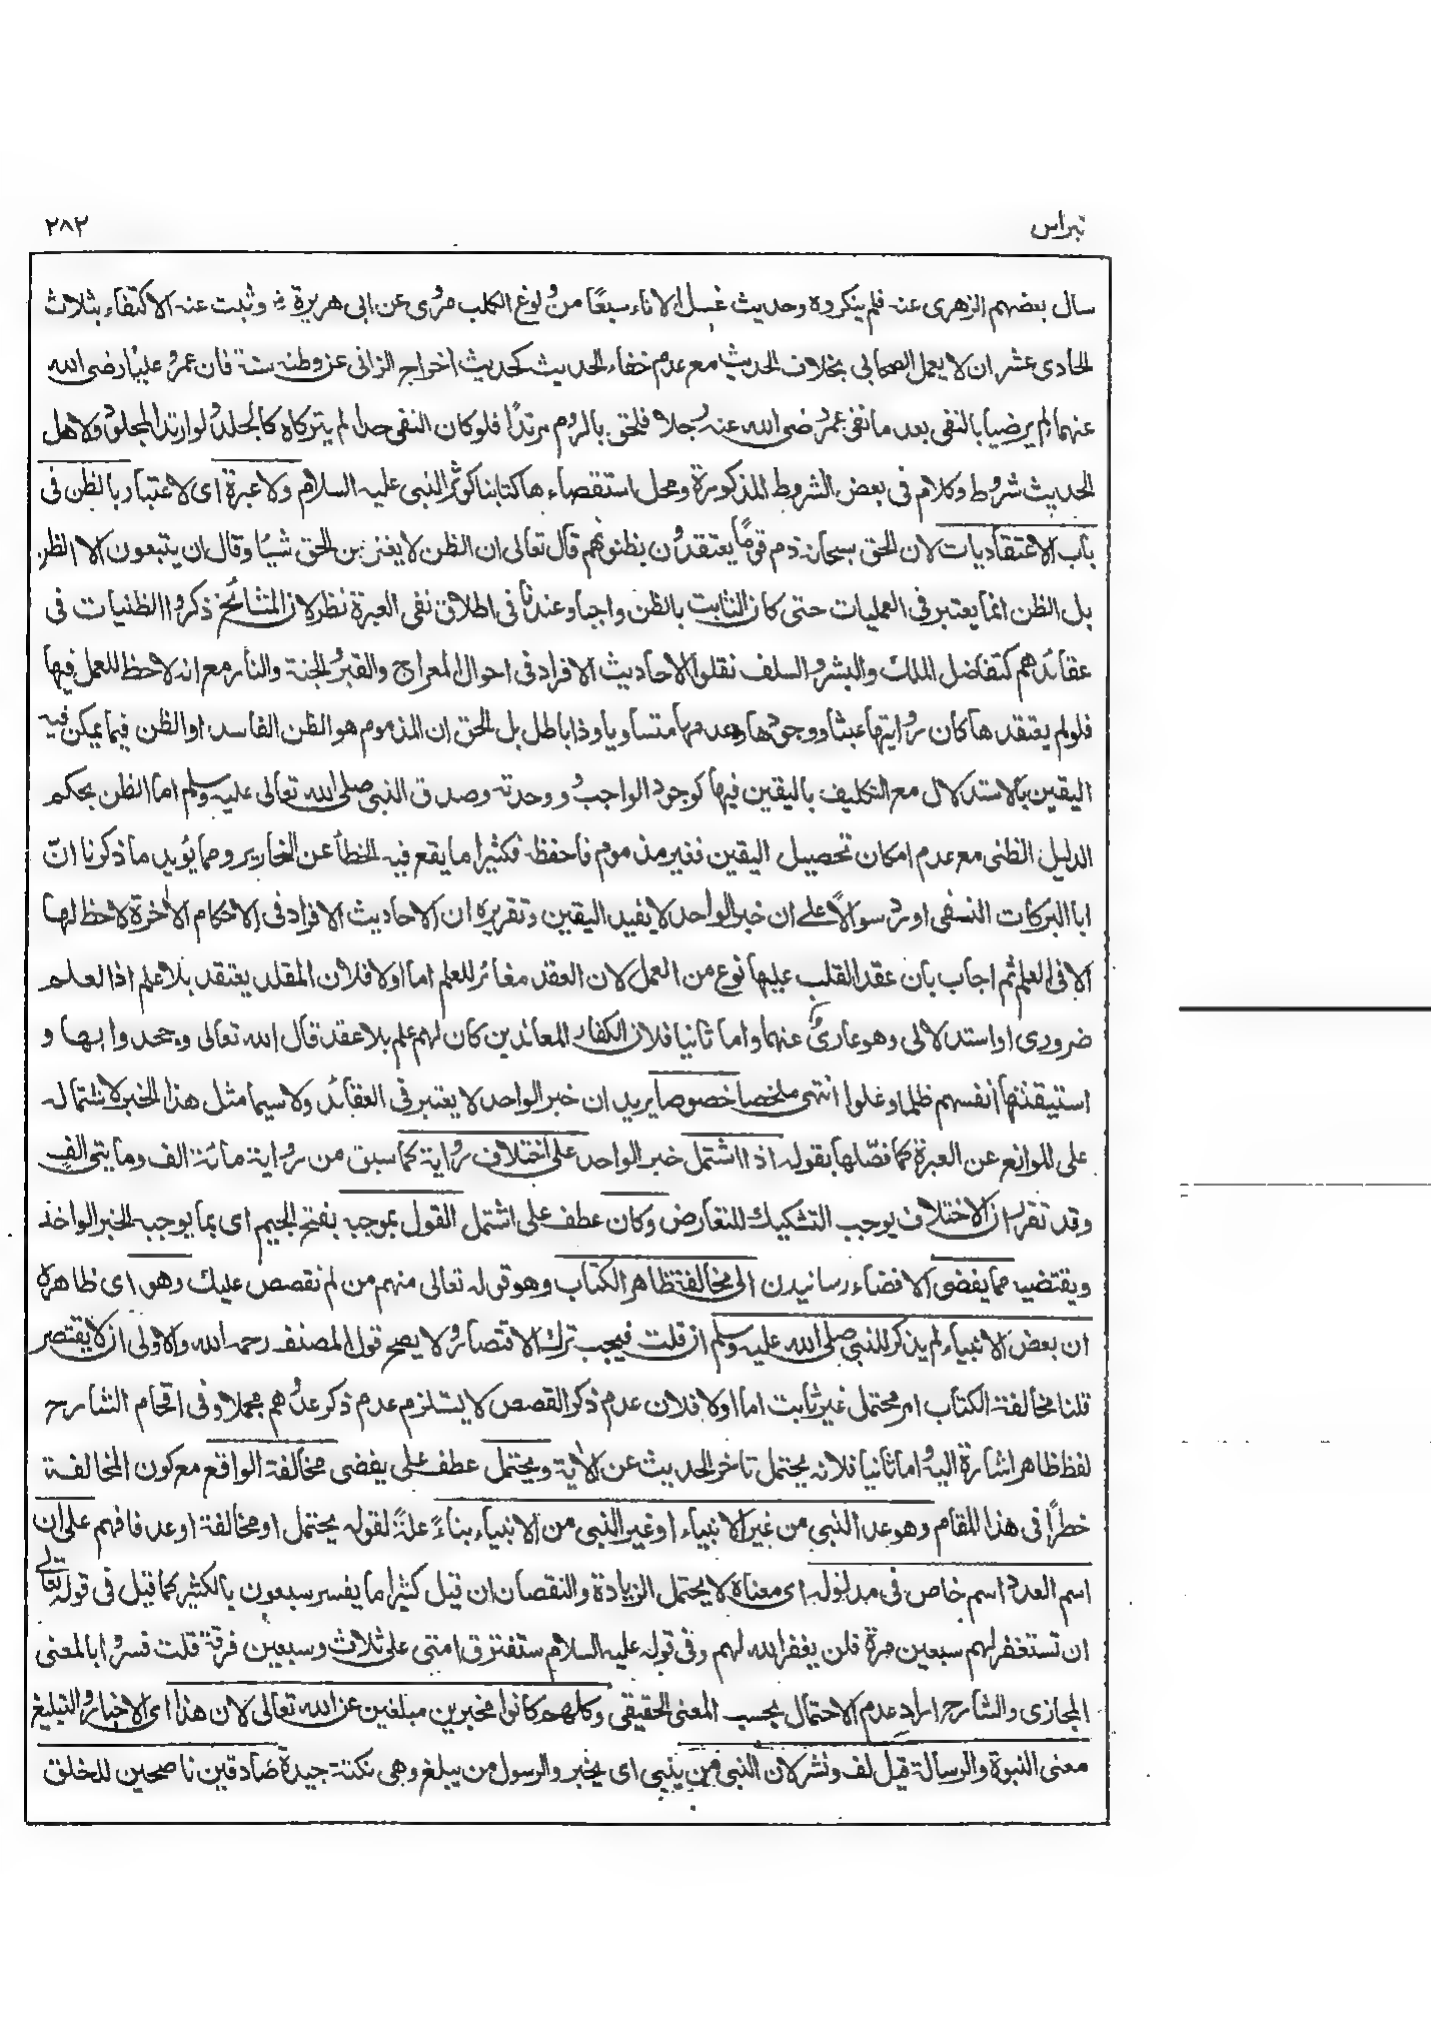 نبراس ٢٨٢
سال بعضهم الزهري عنه فلم ينكروه وحديث غسل الاناء سبعًا من ولوغ الكلب مروى عن ابى هريرة رض وثبت عنه الاكتفاء بثلاث
الحادى عشر ان لا يعمل الصحابى بخلاف الحديث مع عدم خفاء الحديث كحديث اخراج الزانى عن وطنه سنة فان عمر وعليا رضى الله
عنهما لم يرضيا بالنفى بعد ما نفى عمر رضى الله عنه رجلا فلحق بالروم مرتدًا فلو كان النفى حدا لم يتركاه كالجلد ولو ارتد المجلود ولاهل
الحديث شروط وكلام فى بعض الشروط المذكورة ومحل استقصاءها كتابنا كوثر النبى عليه السلام ولا عبرة اى لا اعتبار بالظن فى
باب الاعتقاديات لان الحق سبحانه ذم قوما يعتقدون بظنونهم قال تعالى ان الظن لا يغنى من الحق شيئا وقال ان يتبعون الا الظن
بل الظن انما يعتبر فى العمليات حتى كان الثابت بالظن واجبا وعندنا فى اطلاق نفى العبرة نظر لان المشائخ ذكروا الظنيات فى
عقائدهم كتفاضل الملك والبشر والسلف نقلوا الاحاديث الافراد فى احوال المعراج والقبر والجنة والنار مع انه لا حظ للعمل فيها
فلو لم يعتقدها كان روايتها عبثا ووجودها وعدمها متساويا وذا باطل بل الحق ان المذموم هو الظن الفاسد او الظن فيما يمكن فيه
اليقين بالاستدلال مع التكليف باليقين فيها كوجود الواجب ووحدته وصدق النبى صلى الله تعالى عليه وسلم اما الظن بحكم
الدليل الظنى مع عدم امكان تحصيل اليقين فغير مذموم فاحفظه فكثيرا ما يقع فيه الخطأ عن النحارير ومما يؤيد ما ذكرنا انّ
ابا البركات النسفى اورد سوالًا على ان خبر الواحد لا يفيد اليقين وتقريره ان الاحاديث الافراد فى الاحكام الآخرة لا حظ لها
الا فى العلم ثم اجاب بان عقد القلب عليها نوع من العمل لان العقد مغائر للعلم اما اولا فلان المقلد يعتقد بلا علم اذ العلم
ضرورى او استدلالى وهو عارى عنهما واما ثانيا فلان الكفار المعاندين كان لهم علم بلا عقد قال الله تعالى وجحدوا بها و
استيقنتها انفسهم ظلما وعلوا انتهى ملخصا خصوصا يريد ان خبر الواحد لا يعتبر فى العقائد ولا سيما مثل هذا الخبر لاشتماله
على الموانع عن العبرة كما فصّلها بقوله اذا اشتمل خبر الواحد على اختلاف رواية كما سبق من رواية مائة الف ومايتى الف
وقد تقرر ان الاختلاف يوجب التشكيك للتعارض وكان عطف على اشتمل القول بموجبه بفتح الجيم اى بما يوجبه الخبر الواحد
ويقتضيه مما يفضى الافضاء رسانيدن الى مخالفة ظاهر الكتاب وهو قوله تعالى منهم من لم نقصص عليك وهو اى ظاهره
ان بعض الانبياء لم يذكر للنبى صلى الله عليه وسلم ان قلت فيجب ترك الاقتصار ولا يصح قول المصنف رحمه الله والاولى ان لا يقتصر
قلنا مخالفة الكتاب امر محتمل غير ثابت اما اولا فلان عدم ذكر القصص لا يستلزم عدم ذكر عددهم مجملا وفى اقحام الشارح
لفظ ظاهر اشارة اليه واما ثانيا فلانه يحتمل تاخر الحديث عن الآية ويحتمل عطف على يفضى مخالفة الواقع مع كون المخالفة
خطرًا فى هذا المقام وهو عد النبى من غير الانبياء او غير النبى من الانبياء بناءً علة لقوله يحتمل او مخالفة او عد فافهم على ان
اسم العدد اسم خاص فى مدلوله اى معناه لا يحتمل الزيادة والنقصان ان قيل كثيرا ما يفسر سبعون بالكثير كما قيل فى قوله تعالى
ان تستغفر لهم سبعين مرة فلن يغفر الله لهم وفى قوله عليه السلام ستفترق امتى على ثلاث وسبعين فرقة قلت فسروا بالمعنى
المجازى والشارح اراد عدم الاحتمال بحسب المعنى الحقيقى وكلهم كانوا مخبرين مبلغين عن الله تعالى لان هذا اى الاخبار والتبليغ
معنى النبوة والرسالة قيل لف ونشر لان النبى من ينبى اى يخبر والرسول من يبلغ وهى نكتة جيدة صادقين ناصحين للخلق